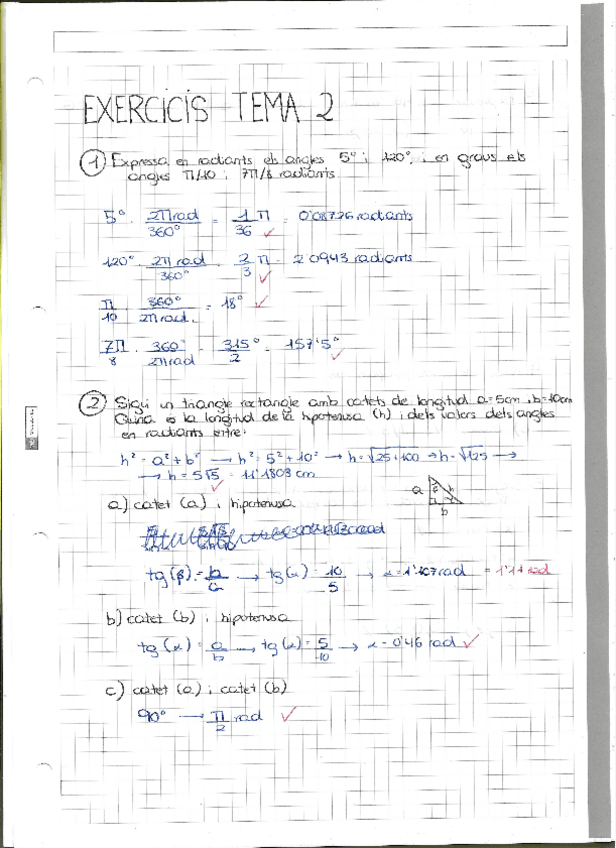 EXERCICIS TEMA 2
1 Expressa en radiants els angles 5° i 120° i en graus els
angles π/10 i 7π/8 radiants.
5° · 2π rad / 360° = 1/36 π = 0'08726 radiants
120° · 2π rad / 360° = 2/3 π = 2'0943 radiants
π/10 · 360° / 2π rad. = 18°
7π/8 · 360° / 2π rad = 315°/2 = 157'5°
2 Sigui un triangle rectangle amb catets de longitud a=5cm i b=10cm
Quina és la longitud de la hipotenusa (h) i dels valors dels angles
en radiants entre:
h² = a² + b² → h² = 5² + 10² → h = √25+100 → h = √125 →
→ h = 5√5 = 11'1803 cm
a h b
a) catet (a) i hipotenusa
tg(β) = b/a → tg(α) = 10/5 → α = 1'107 rad = 1'11 rad
b) catet (b) i hipotenusa
tg(α) = a/b → tg(α) = 5/10 → α = 0'46 rad
c) catet (a) i catet (b)
90° → π/2 rad